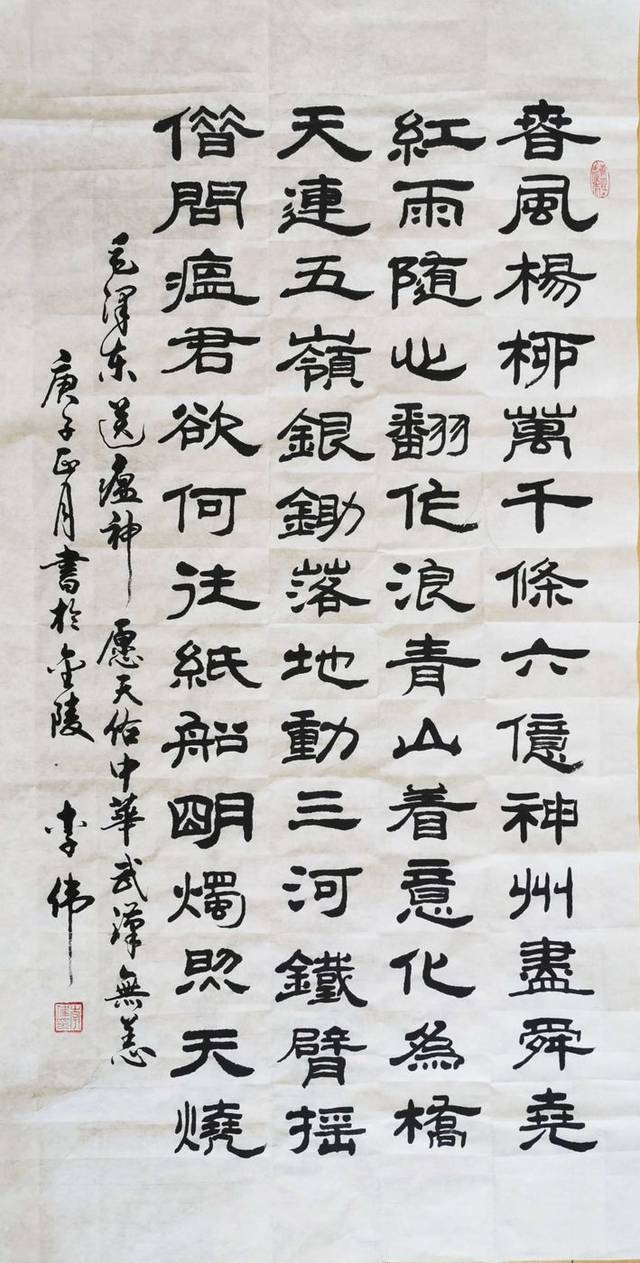 春風楊柳萬千條六億神州盡舜堯
紅雨隨心翻作浪青山着意化為橋
天連五嶺銀鋤落地動三河鐵臂摇
借問瘟君欲何往紙船明燭照天燒
毛泽东送瘟神 愿天佑中華武漢無恙
庚子正月書於金陵 李伟